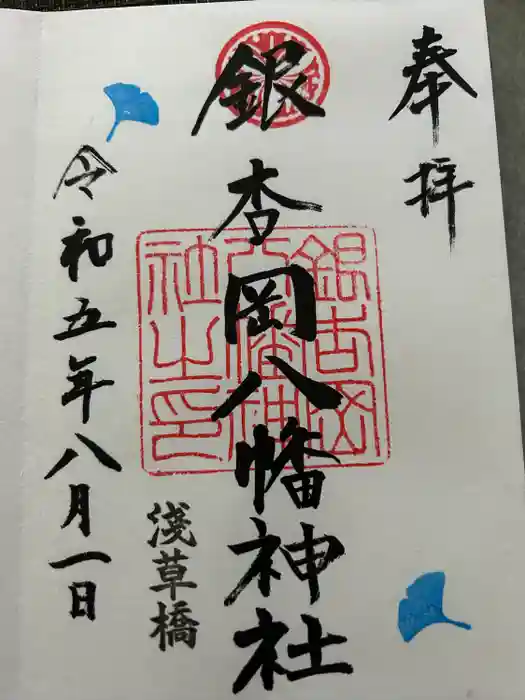 奉拝
銀杏岡八幡神社
銀杏岡八幡神社之印
浅草橋
令和五年八月一日